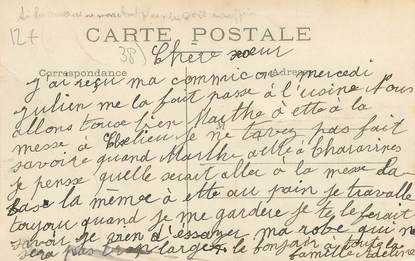 12+
CARTE POSTALE
38) Chère sœur
Correspondance Adresse
J'ai reçu ma commicion mercedi
Julien me la fait passé à l'usine Nous
allons tous bien Marthe à etté à la
messe à je ne tavez pas fait
savoire quand Marthe à etté à Charavines
je pense quelle serait aller à la messe La
bas la même à etté au pain je travaille
toujou quand je me garderé je te le ferait
savoir je vien d'essayer ma robe qui ne
sera pas trop large le bonjoir à toute la
famille